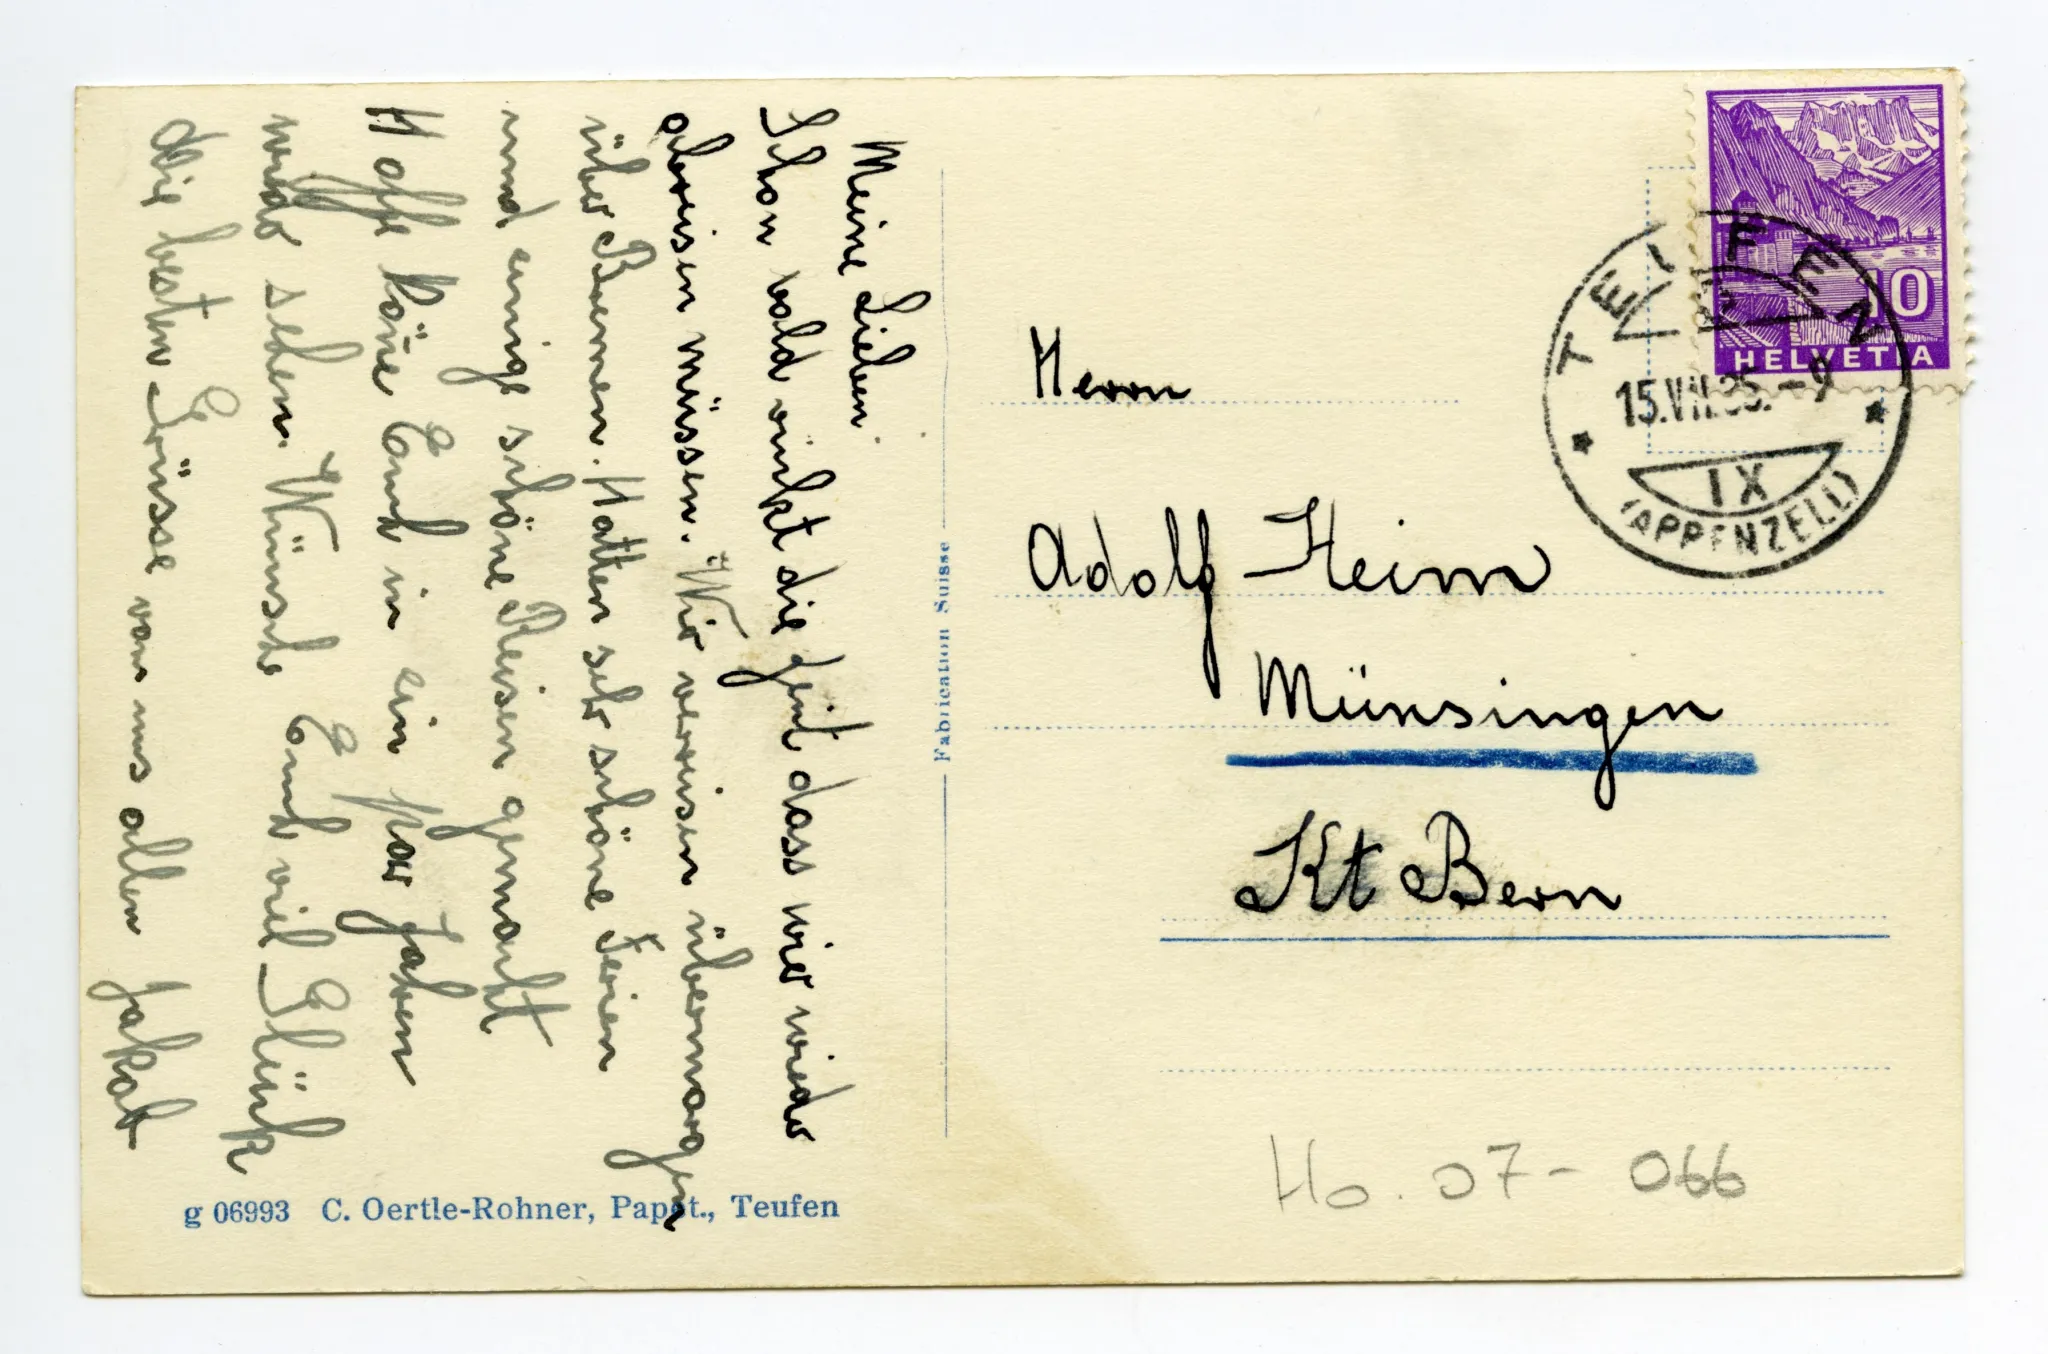 Meine Lieben
Schon bald rückt die Zeit dass wir wieder
abreisen müssen. Wir verreisen übermorgen
über Luzern. Hatten sehr schöne Ferien
und einige schöne Reisen gemacht
Hoffe könne Euch in ein par Jahren
wieder sehen. Wünsche Euch viel Glück
die besten Grüsse von uns allen Jakob
g 06993 C. Oertle-Rohner, Papet., Teufen
Fabrication Suisse
HELVETIA
10
TEUFEN
15.VII.35.-9
IX
(APPENZELL)
Herrn
Adolf Heim
Münsingen
Kt Bern
Ho. 07-066